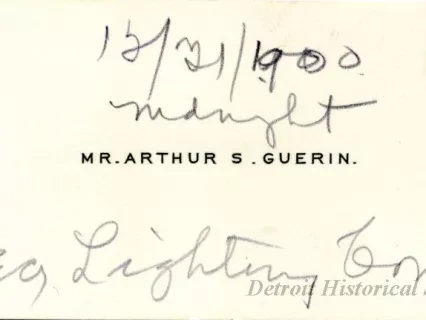 12/31/1900
midnight
MR. ARTHUR S. GUERIN.
Lighting
Detroit Historical